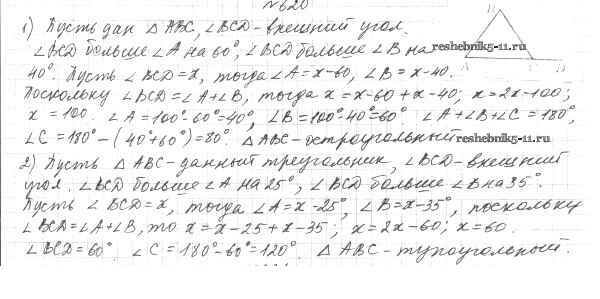 №620
1) Пусть дан △ABC, ∠BCD - внешний угол.
∠BCD больше ∠A на 60°, ∠BCD больше ∠B на
reshebnik5-11.ru
40°. Пусть ∠BCD = x, тогда ∠A = x-60, ∠B = x-40.
Поскольку ∠BCD = ∠A+∠B, тогда x = x-60 + x-40; x = 2x-100;
x = 100. ∠A = 100°-60° = 40°, ∠B = 100°-40° = 60°. ∠A+∠B+∠C = 180°,
∠C = 180° - (40°+60°) = 80°. △ABC - остроугольный
reshebnik5-11.ru
2) Пусть △ABC - данный треугольник, ∠BCD - внешний
угол. ∠BCD больше ∠A на 25°, ∠BCD больше ∠B на 35°.
Пусть ∠BCD = x, тогда ∠A = x-25°, ∠B = x-35°, поскольку
∠BCD = ∠A+∠B, то x = x-25 + x-35; x = 2x-60; x = 60.
∠BCD = 60° ∠C = 180°-60° = 120°. △ABC - тупоугольный.